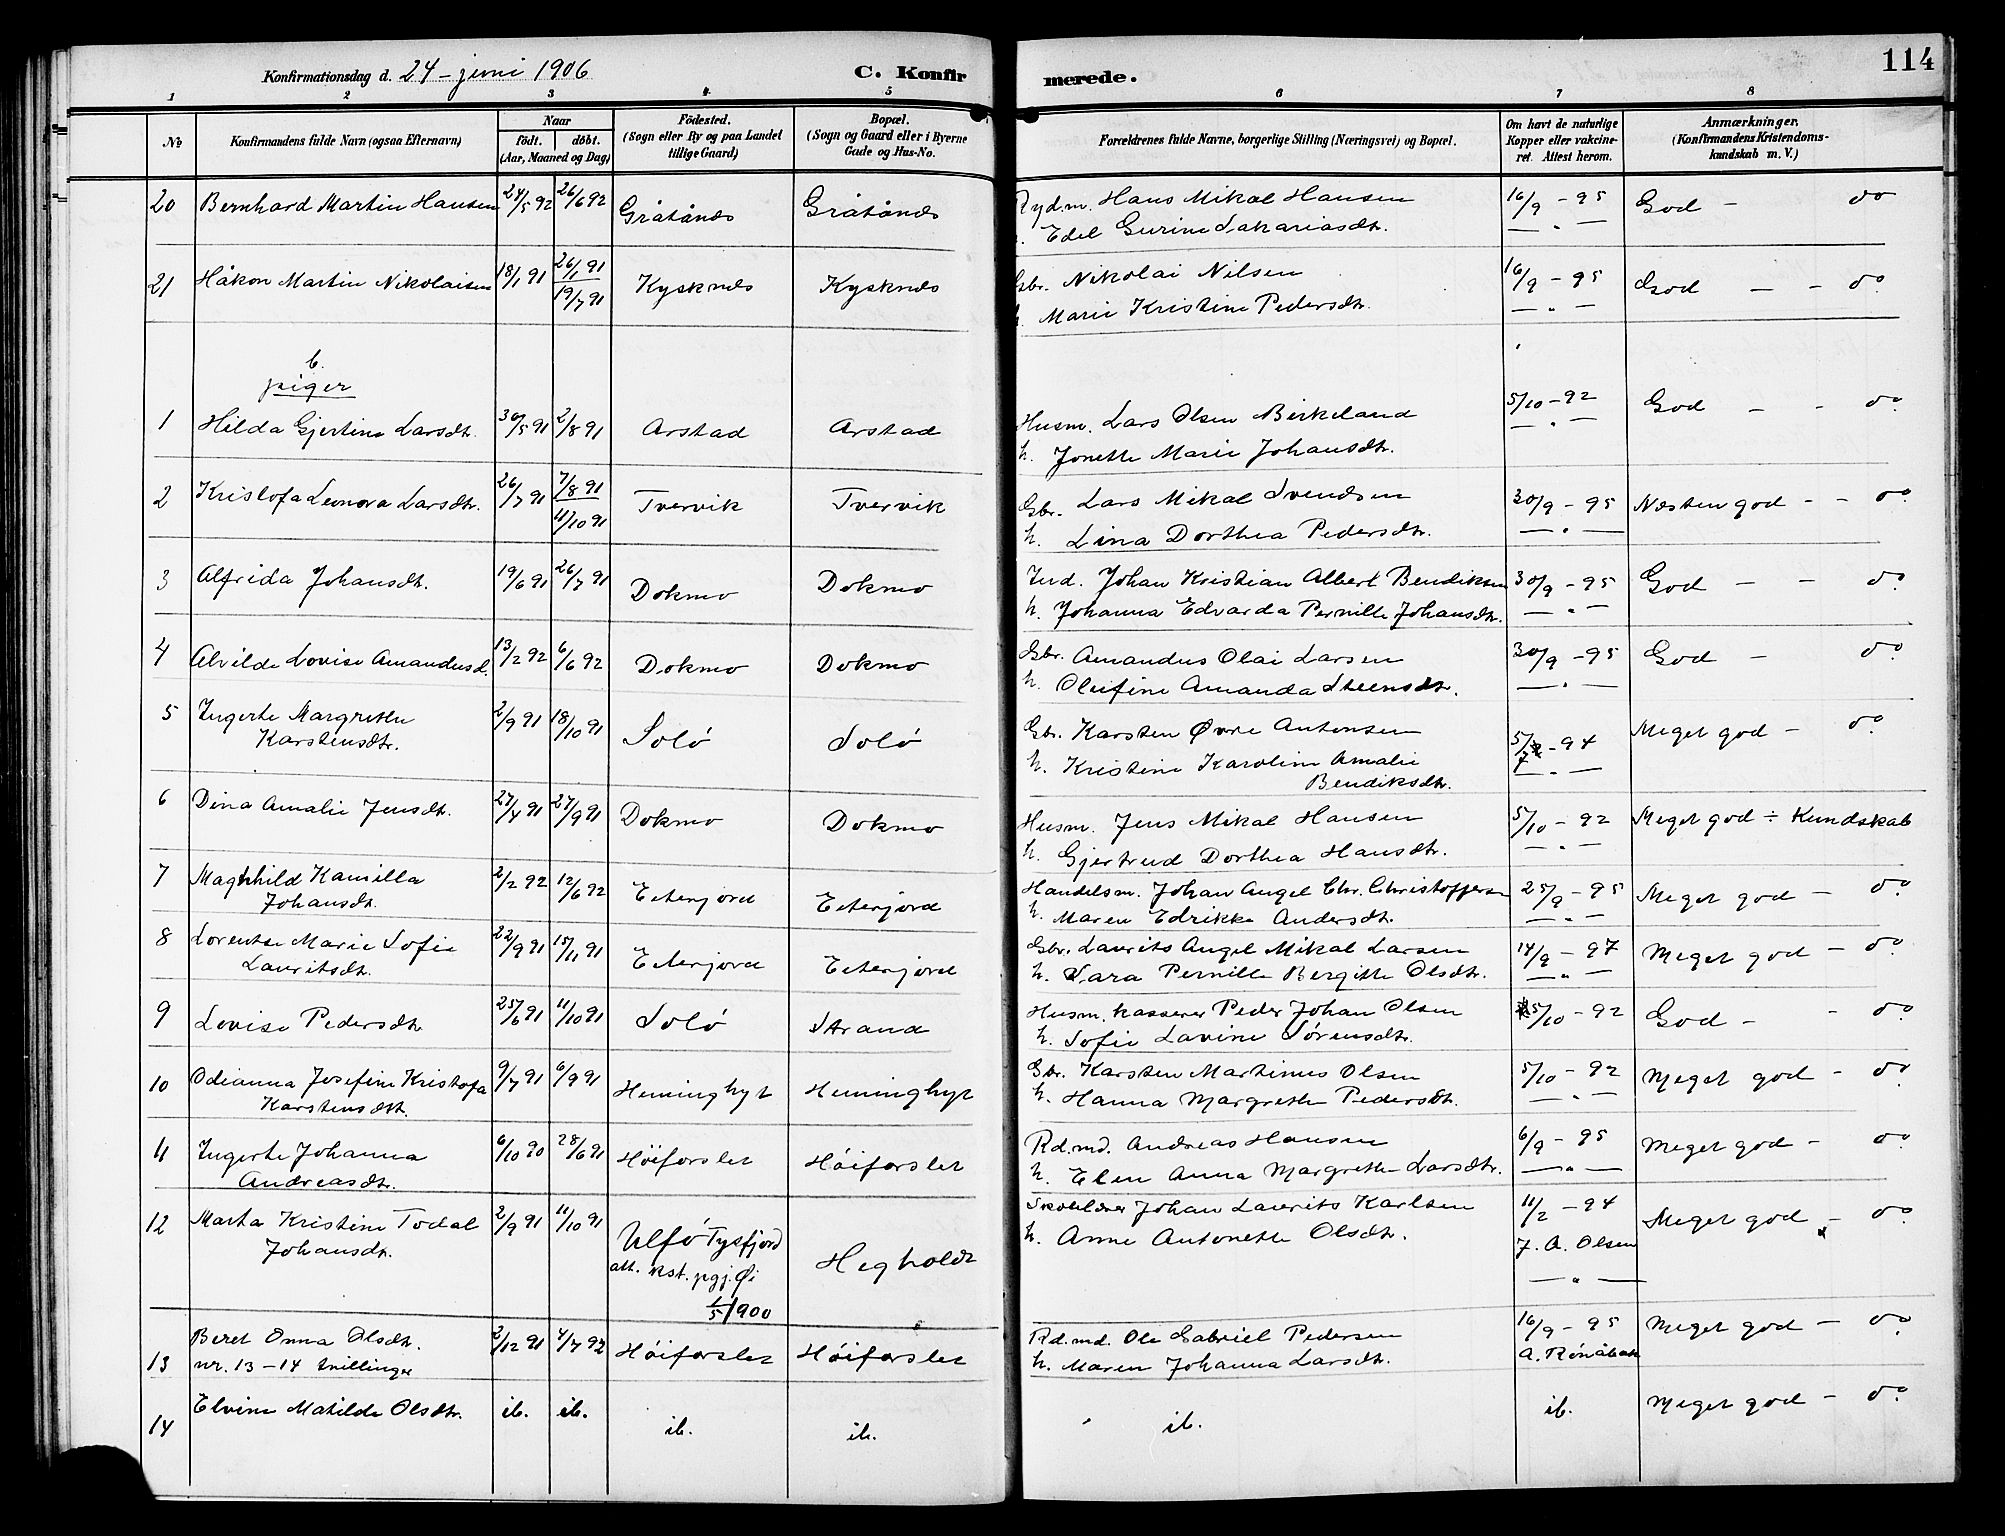 Konfirmationsdag d. 24 - juni 1906 C. Konfir merede. 114
1 2 3 4 5 6 7 8
No Konfirmandens fulde Navn (ogsaa Efternavn) Naar födt. döbt. (Aar, Maaned og Dag) Födested. (Sogn eller By og paa Landet tillige Gaard) Bopæl. (Sogn og Gaard eller i Byerne Gade og Hus-No. Forældrenes fulde Navne, borgerlige Stilling (Næringsvei) og Bopæl. Om havt de naturlige Kopper eller vakcineret. Attest herom. Anmærkninger. (Konfirmandens Kristendomskundskab m. V.)
20 Bernhard Martin Hansen 24/5 92 26/6 92 Gråtånes Gråtånes Ryd.m. Hans Mikal Hansen 16/9 - 95 God - do
Edel Gurine Sakariasdtr. — " —
21 Håkon Martin Nikolaisen 18/1 91 26/1 91 Kysknes Kysknes Gbr. Nikolai Nilsen 16/9 - 95 God - - do
19/7 91 h. Marie Kristine Pedersdtr. — " —
b.
piger
1 Hilda Gjertine Larsdtr. 30/5 91 2/8 91 Arstad Arstad Husm. Lars Olsen Birkeland 5/10 - 92 God - - do
h. Jonette Marie Johansdtr. — " —
2 Kristofa Leonora Larsdtr. 26/7 91 7/8 91 Tvervik Tvervik Gbr. Lars Mikal Svendsen 30/9 - 95 Næsten god - - do
11/10 91 h. Lina Dorthea Pedersdtr. — " —
3 Alfrida Johansdtr. 19/6 91 26/7 91 Dokmo Dokmo Ind. Johan Kristian Albert Bendiksen 30/9 - 95 God - - do
h. Johanna Edvarda Pernille Johansdtr. — " —
4 Alvilde Lovise Amandusd. 13/2 92 6/6 92 Dokmo Dokmo Gbr. Amandus Olai Larsen 30/9 - 95 God - do
h. Olufine Amanda Steensdtr. — " —
5 Ingerte Margrethe 2/9 91 18/10 91 Solö Solö Gbr. Karsten Øvre Antonsen 5/7 - 94 Meget god - do
Karstensdtr. h. Kristine Karoline Amalie — " —
Bendiksdtr.
6 Dina Amalie Jensdtr. 27/4 91 27/9 91 Dokmo Dokmo Husm. Jens Mikal Hansen 5/10 - 92 Meget god ÷ Kundskab
h. Gjertrud Dorthea Hansdtr. — " —
7 Magnhild Kamilla 2/2 92 12/6 92 Eterjord Eterjord Handelsm. Johan Angel Chr. Christoffersen 25/9 - 95 Meget god - do
Johansdtr. h. Maren Edrikke Andersdtr. — " —
8 Lorentse Marie Sofie 22/9 91 15/11 91 Eterjord Eterjord Gbr. Laurits Angel Mikal Larsen 14/9 - 97 Meget god - do
Lauritsdtr. h. Sara Pernille Bergitte Olsdtr. — " —
9 Lovise Pedersdtr 25/6 91 11/10 91 Solö Strand Husm. kasserer Peder Johan Olsen 5/10 - 92 God - - do
h. Sofie Lavine Sørensdtr.
10 Odianna Josefine Kristofa 9/7 91 6/9 91 Heminghyt Heminghyt Gbr. Karsten Martinus Olsen 5/10 - 92 Meget god - do
Karstensdtr. h. Hanna Margrethe Pedersdtr. — " —
11 Ingerte Johanna 6/10 90 28/6 91 Höiforslet Höiforslet Rd.md. Andreas Hansen 6/9 - 95 Meget god - do
Andreasdtr. h. Elen Anna Margrethe Larsdtr. — " —
12 Marta Kristine Todal 2/9 91 11/10 91 Ulfö Tysfjord Hegholdt Skolelærer Johan Laurits Karlsen 11/2 - 94 Meget god - do
Johansdtr. att. kst. pgj. Øi h. Anne Antonette Olsdtr. J. A. Olsen
1/5 1900 — " —
13 Beret Onna Olsdtr. 2/12 91 4/7 92 Höiforslet Höiforslet Rd.md. Ole Gabriel Pedersen 16/9 - 95 Meget god - do
nr. 13 - 14 tvillinger h. Maren Johanna Larsdtr. A. Rönåbak
14 Elvine Matilde Olsdtr. ib. ib. ib. ib. ib. ib. Meget god - do